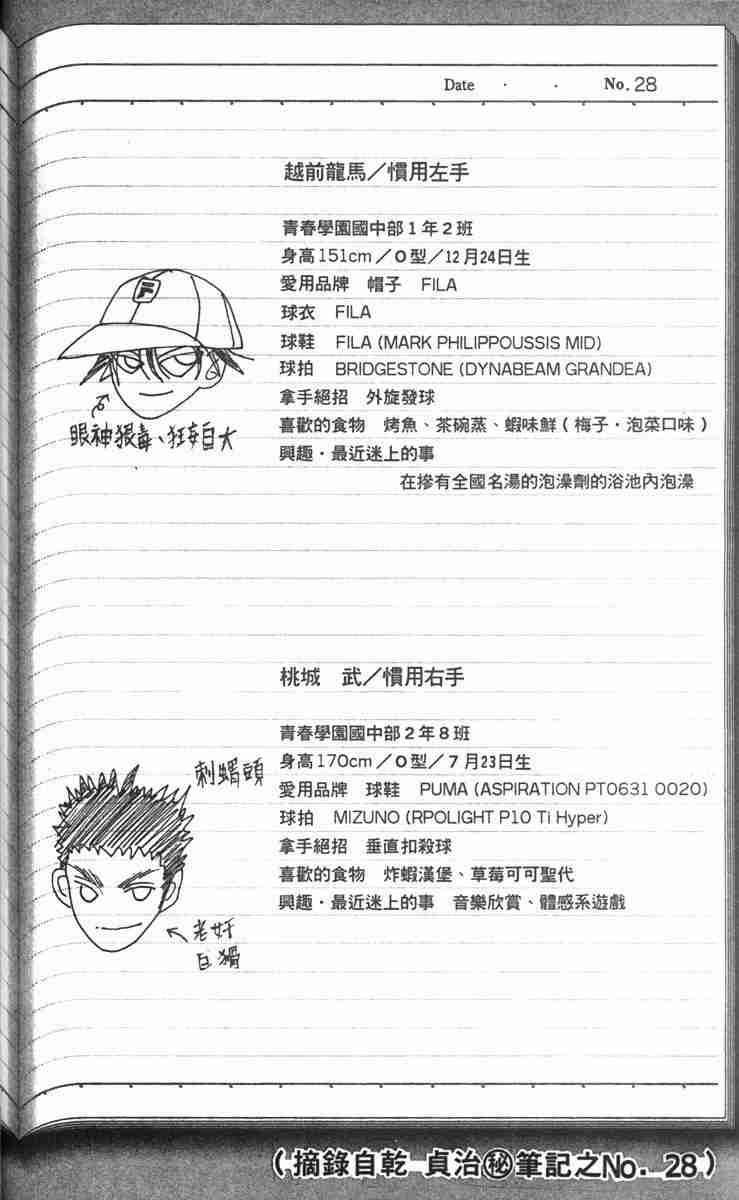 Date ・ ・ No. 28
越前龍馬／慣用左手
青春學園國中部1年2班
身高151cm／O型／12月24日生
愛用品牌　帽子　FILA
球衣　FILA
球鞋　FILA (MARK PHILIPPOUSSIS MID)
球拍　BRIDGESTONE (DYNABEAM GRANDEA)
拿手絕招　外旋發球
喜歡的食物　烤魚、茶碗蒸、蝦味鮮（梅子・泡菜口味）
興趣・最近迷上的事
在摻有全國名湯的泡澡劑的浴池內泡澡
F
眼神狠毒、狂妄自大
桃城　武／慣用右手
青春學園國中部2年8班
身高170cm／O型／7月23日生
愛用品牌　球鞋　PUMA (ASPIRATION PT0631 0020)
球拍　MIZUNO (RPOLIGHT P10 Ti Hyper)
拿手絕招　垂直扣殺球
喜歡的食物　炸蝦漢堡、草莓可可聖代
興趣・最近迷上的事　音樂欣賞、體感系遊戲
刺蝟頭
老奸
巨猾
（摘錄自乾 貞治㊙筆記之No. 28）